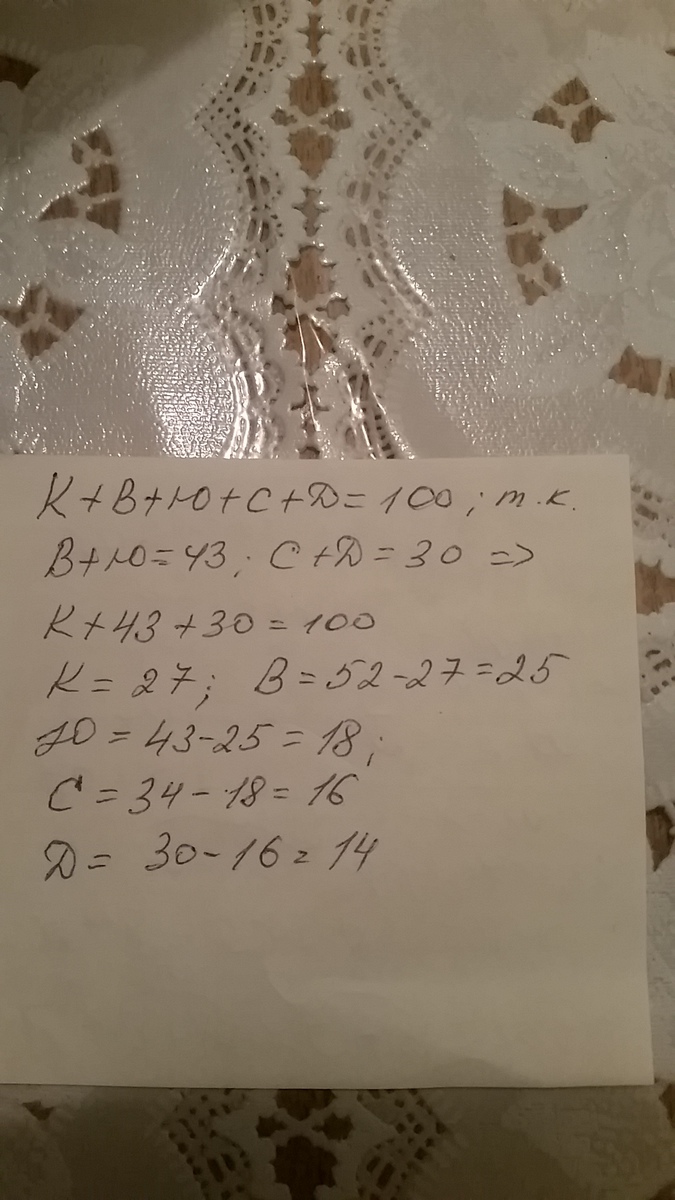 К+В+Ю+С+Д=100; т.к.
В+Ю=43; С+Д=30 =>
К+43+30=100
К=27; В=52-27=25
Ю=43-25=18;
С=34-18=16
Д= 30-16=14